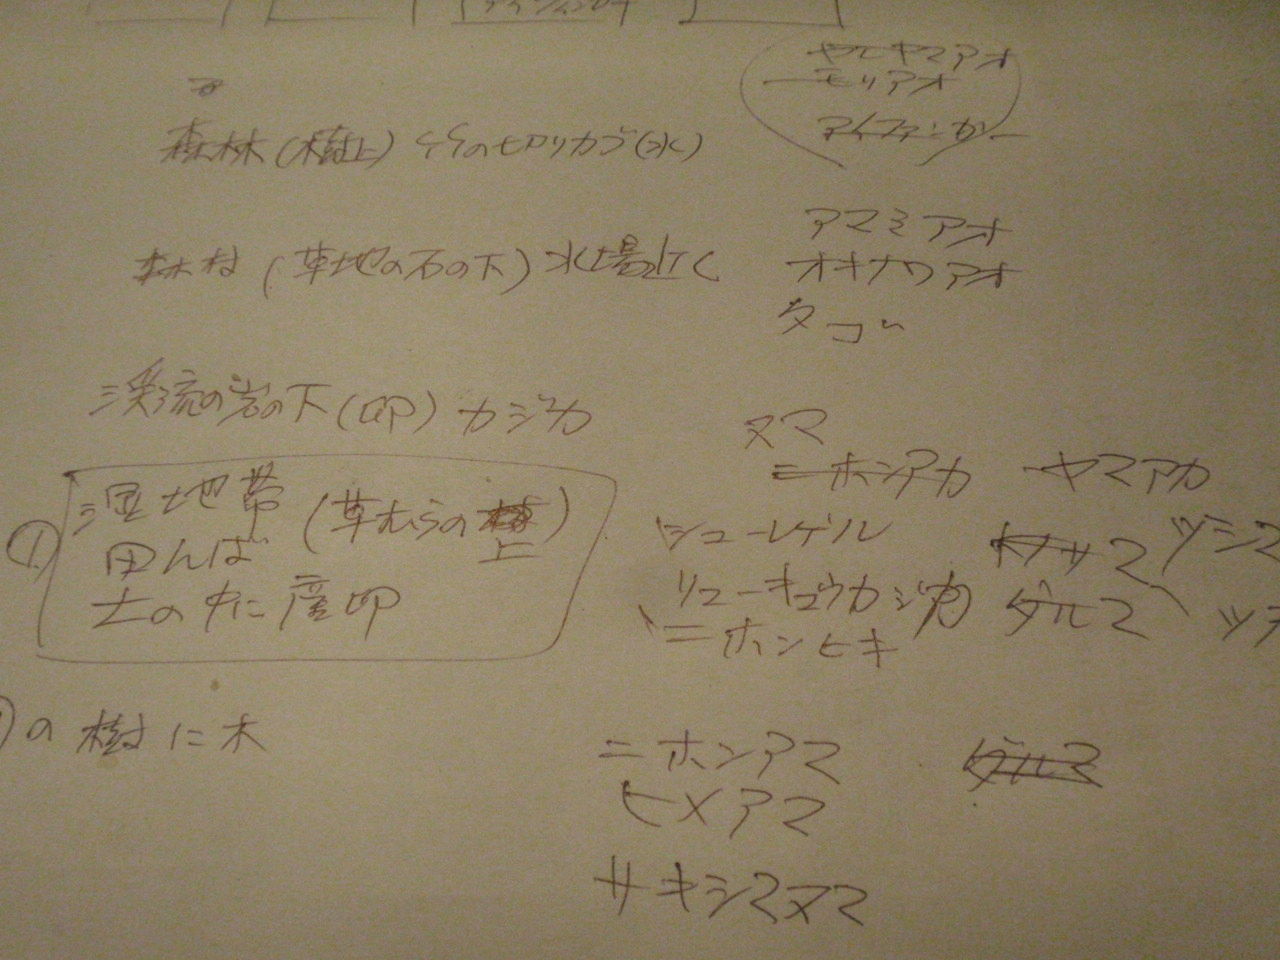 ヤエヤマアオ
モリアオ
森林(樹上) 竹の切りカブ(水)
アイフィンガー
アマミアオ
森林(草地の石の下)水場近く
オキナワアオ
タゴ
渓流の岩の下(卵)カジカ
ヌマ
ニホンアカ ヤマアカ
① 湿地帯(草むらの 上)
田んぼ
土の中に産卵
シューレゲル ツシマ
リューキュウカジカ ダルマ
ニホンヒキ
の 樹に木
ニホンアマ ダルマ
ヒメアマ
サキシマヌマ